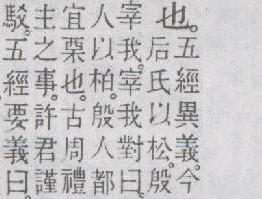 也。
五經異義。今
后氏以松。殷
宰我。宰我對曰。
人以柏。殷人都
宜栗也。古周禮
主之事。許君謹
駁。五經要義曰。